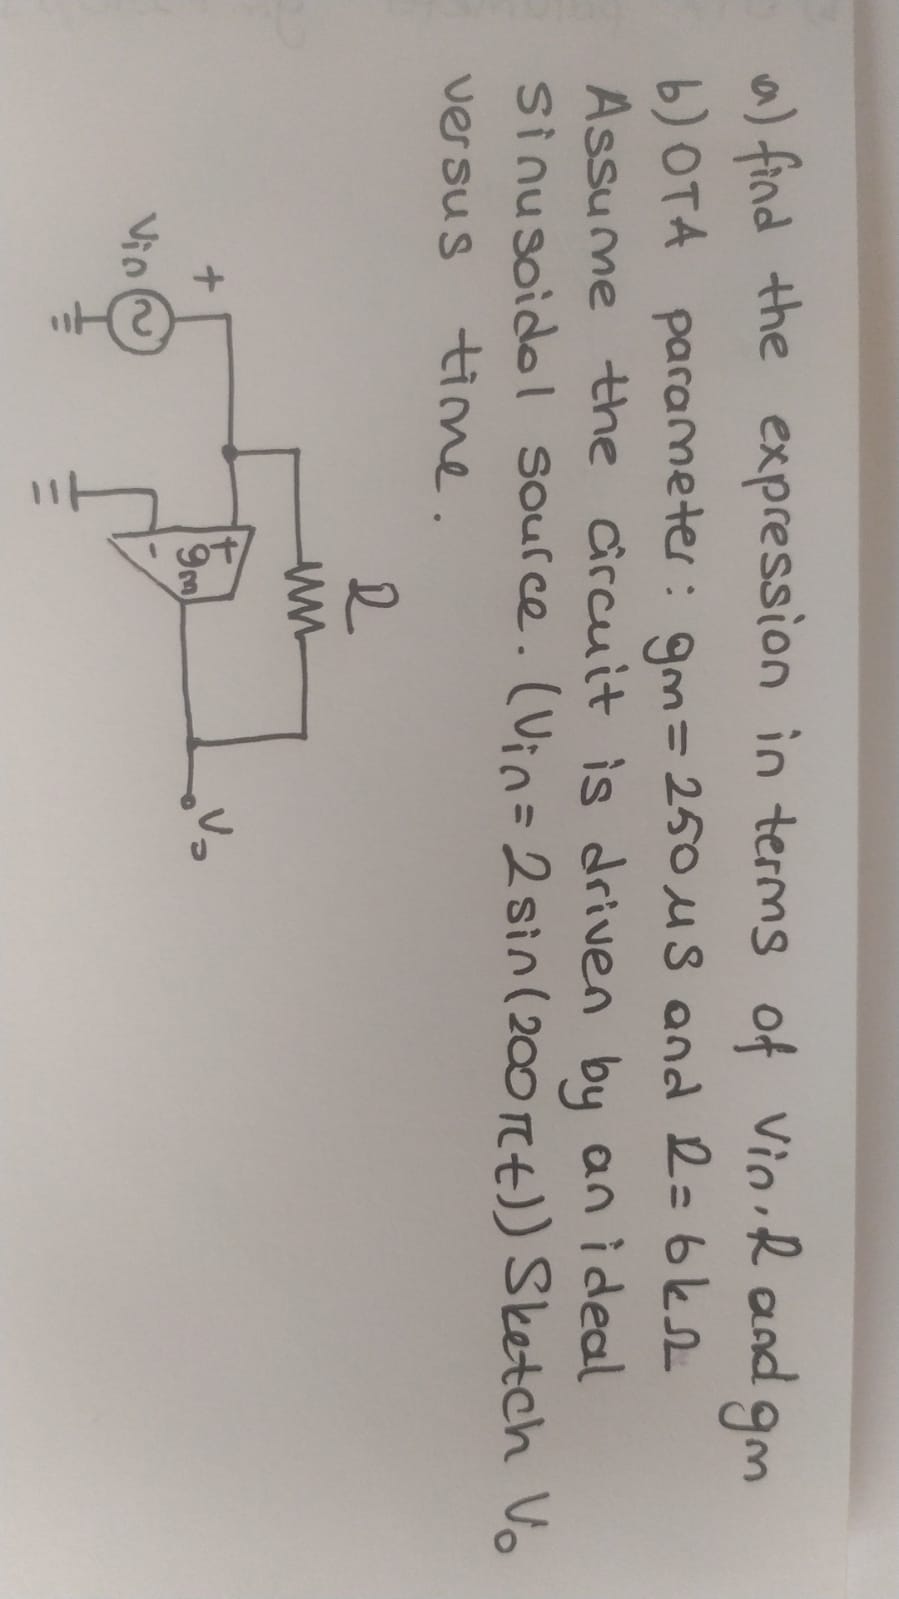 a) find the expression in terms of Vin, R and gm
b) OTA parameter: gm = 250 μS and R = 6kΩ
Assume the circuit is driven by an ideal
sinusoidal source. (Vin = 2 sin(200πt)) Sketch Vo
versus time.
R
+
Vin
+
gm
-
Vo